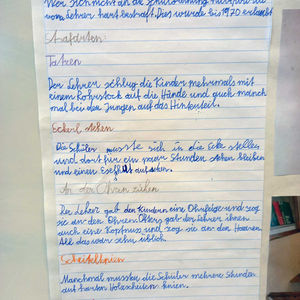 Wer sich nicht an die Schulordnung hielt wurde
vom Lehrer hart bestraft. Dies wurde bis 1970 erlaubt
Strafarten:
Tatzen
Der Lehrer schlug die Kinder mehrmals mit
einem Rohrstock auf die Hände und auch manch
mal bei den Jungen auf das Hinterteil.
Eckerl stehen
Die Schüler mussten sich in die Ecke stellen
und dort für ein paar Stunden stehen bleiben
und einen Eselhut aufsetzen.
An den Ohren ziehen
Der Lehrer gab den Kindern eine Ohrfeige und zog
sie an den Ohren. Öfters gab der Lehrer ihnen
auch eine Kopfnuss und zog sie an den Haaren.
All das war sehr üblich.
Scheitelknien
Manchmal mussten die Schüler mehrere Stunden
auf harten Holzscheiten knien.